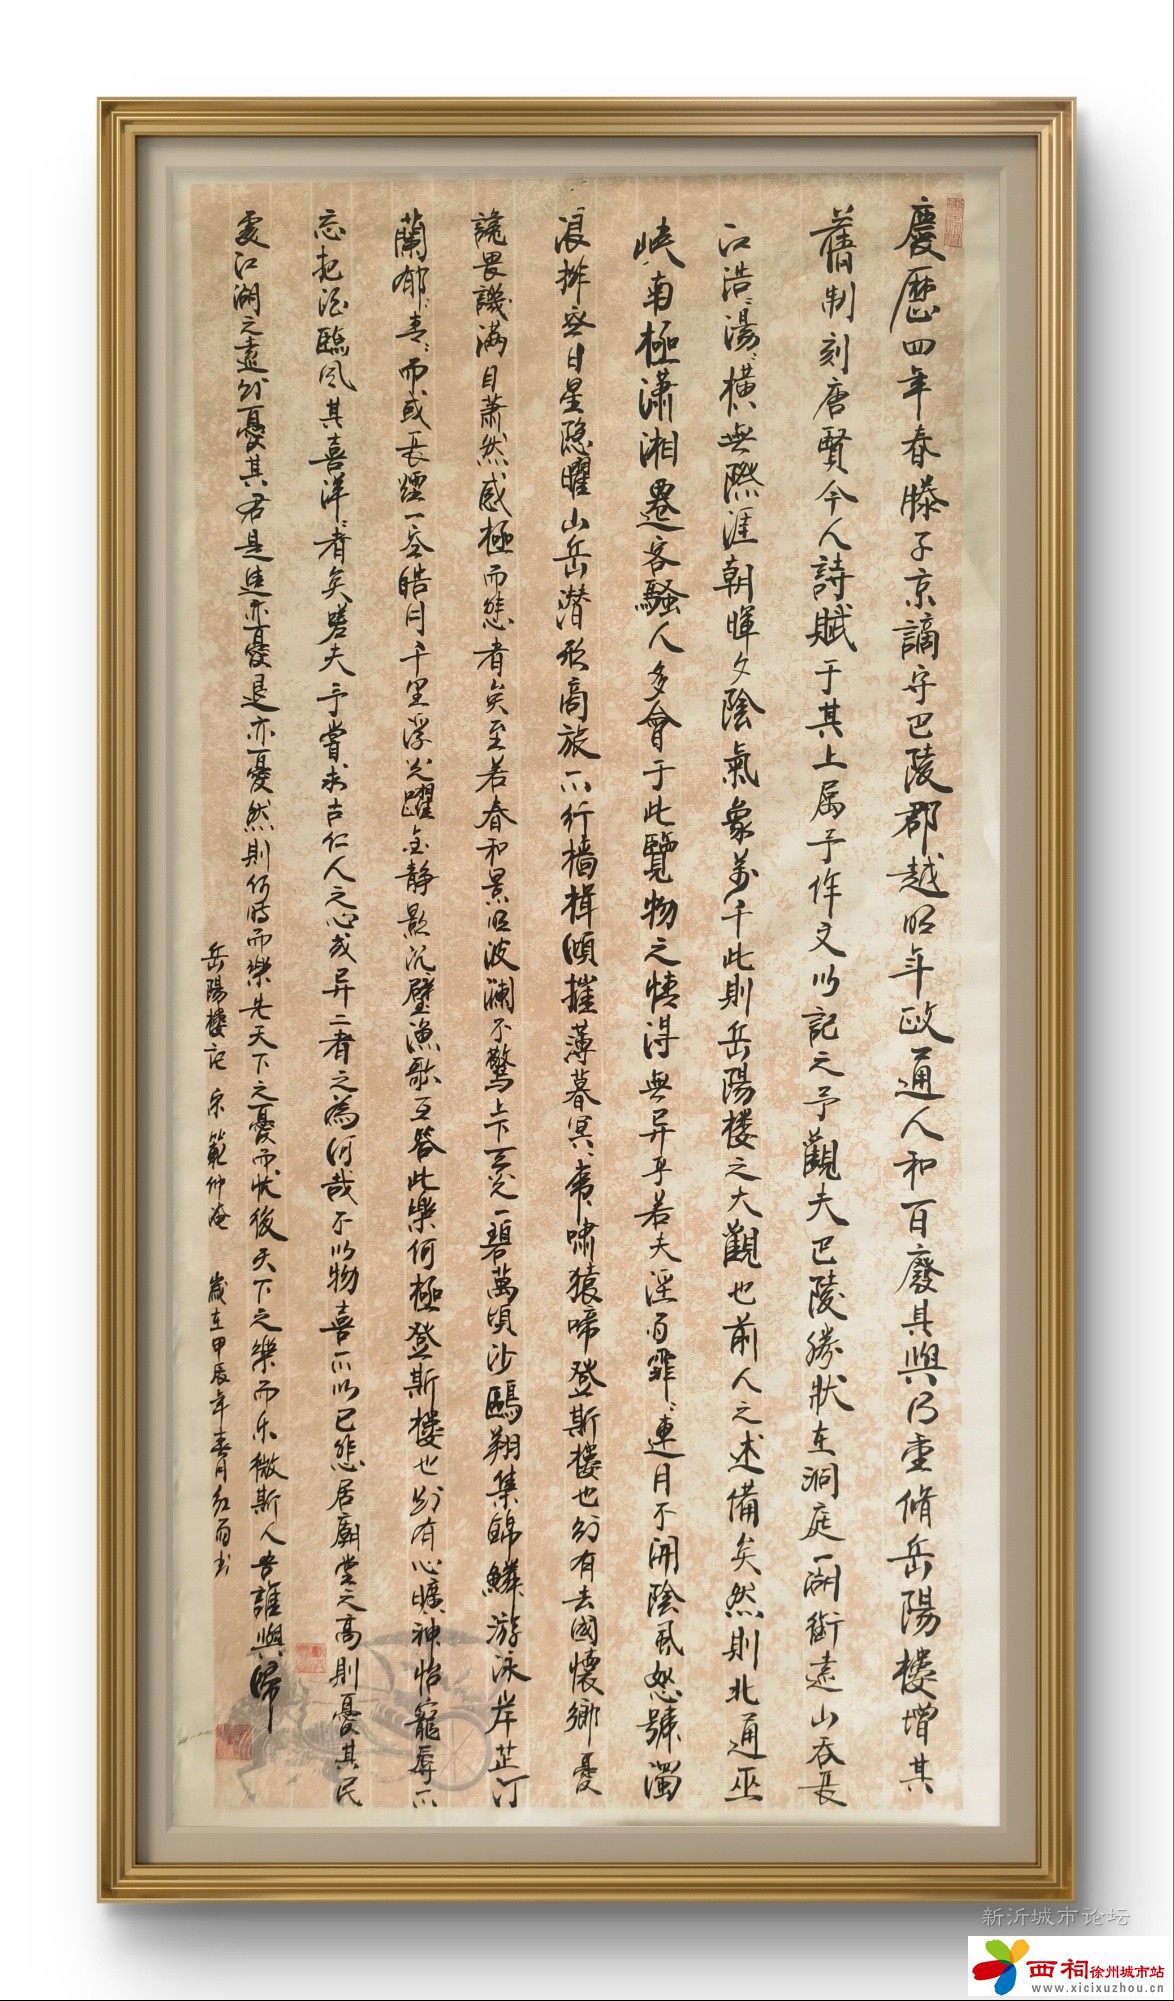 慶歷四年春滕子京謫守巴陵郡越明年政通人和百廢具興乃重脩岳陽楼增其
舊制刻唐賢今人詩賦于其上属予作文以記之予觀夫巴陵勝狀在洞庭一湖銜遠山吞長
江浩々湯々橫無際涯朝暉夕陰氣象萬千此則岳陽楼之大觀也前人之述備矣然則北通巫
峽南極瀟湘遷客騷人多會于此覽物之情得無异乎若夫淫雨霏々連月不開陰風怒號濁
浪排空日星隐曜山岳潜形商旅不行檣楫傾摧薄暮冥々虎嘯猿啼登斯楼也則有去國懷鄉憂
讒畏譏满目萧然感極而悲者矣至若春和景明波澜不驚上下天光一碧萬頃沙鷗翔集錦鱗游泳岸芷汀
蘭郁々青々而或長煙一空皓月千里浮光躍金静影沉璧漁歌互答此樂何極登斯楼也則有心曠神怡寵辱不
忘把酒臨風其喜洋々者矣嗟夫予嘗求古仁人之心或异二者之為何哉不以物喜不以己悲居廟堂之高則憂其民
處江湖之遠則憂其君是進亦憂退亦憂然則何時而樂先天下之憂而憂後天下之樂而乐微斯人吾誰與歸
岳陽楼記 宋 範仲淹 歲在甲辰年春月红雨书
新沂城市论坛
西祠徐州城市站
www.xicixuzhou.cn